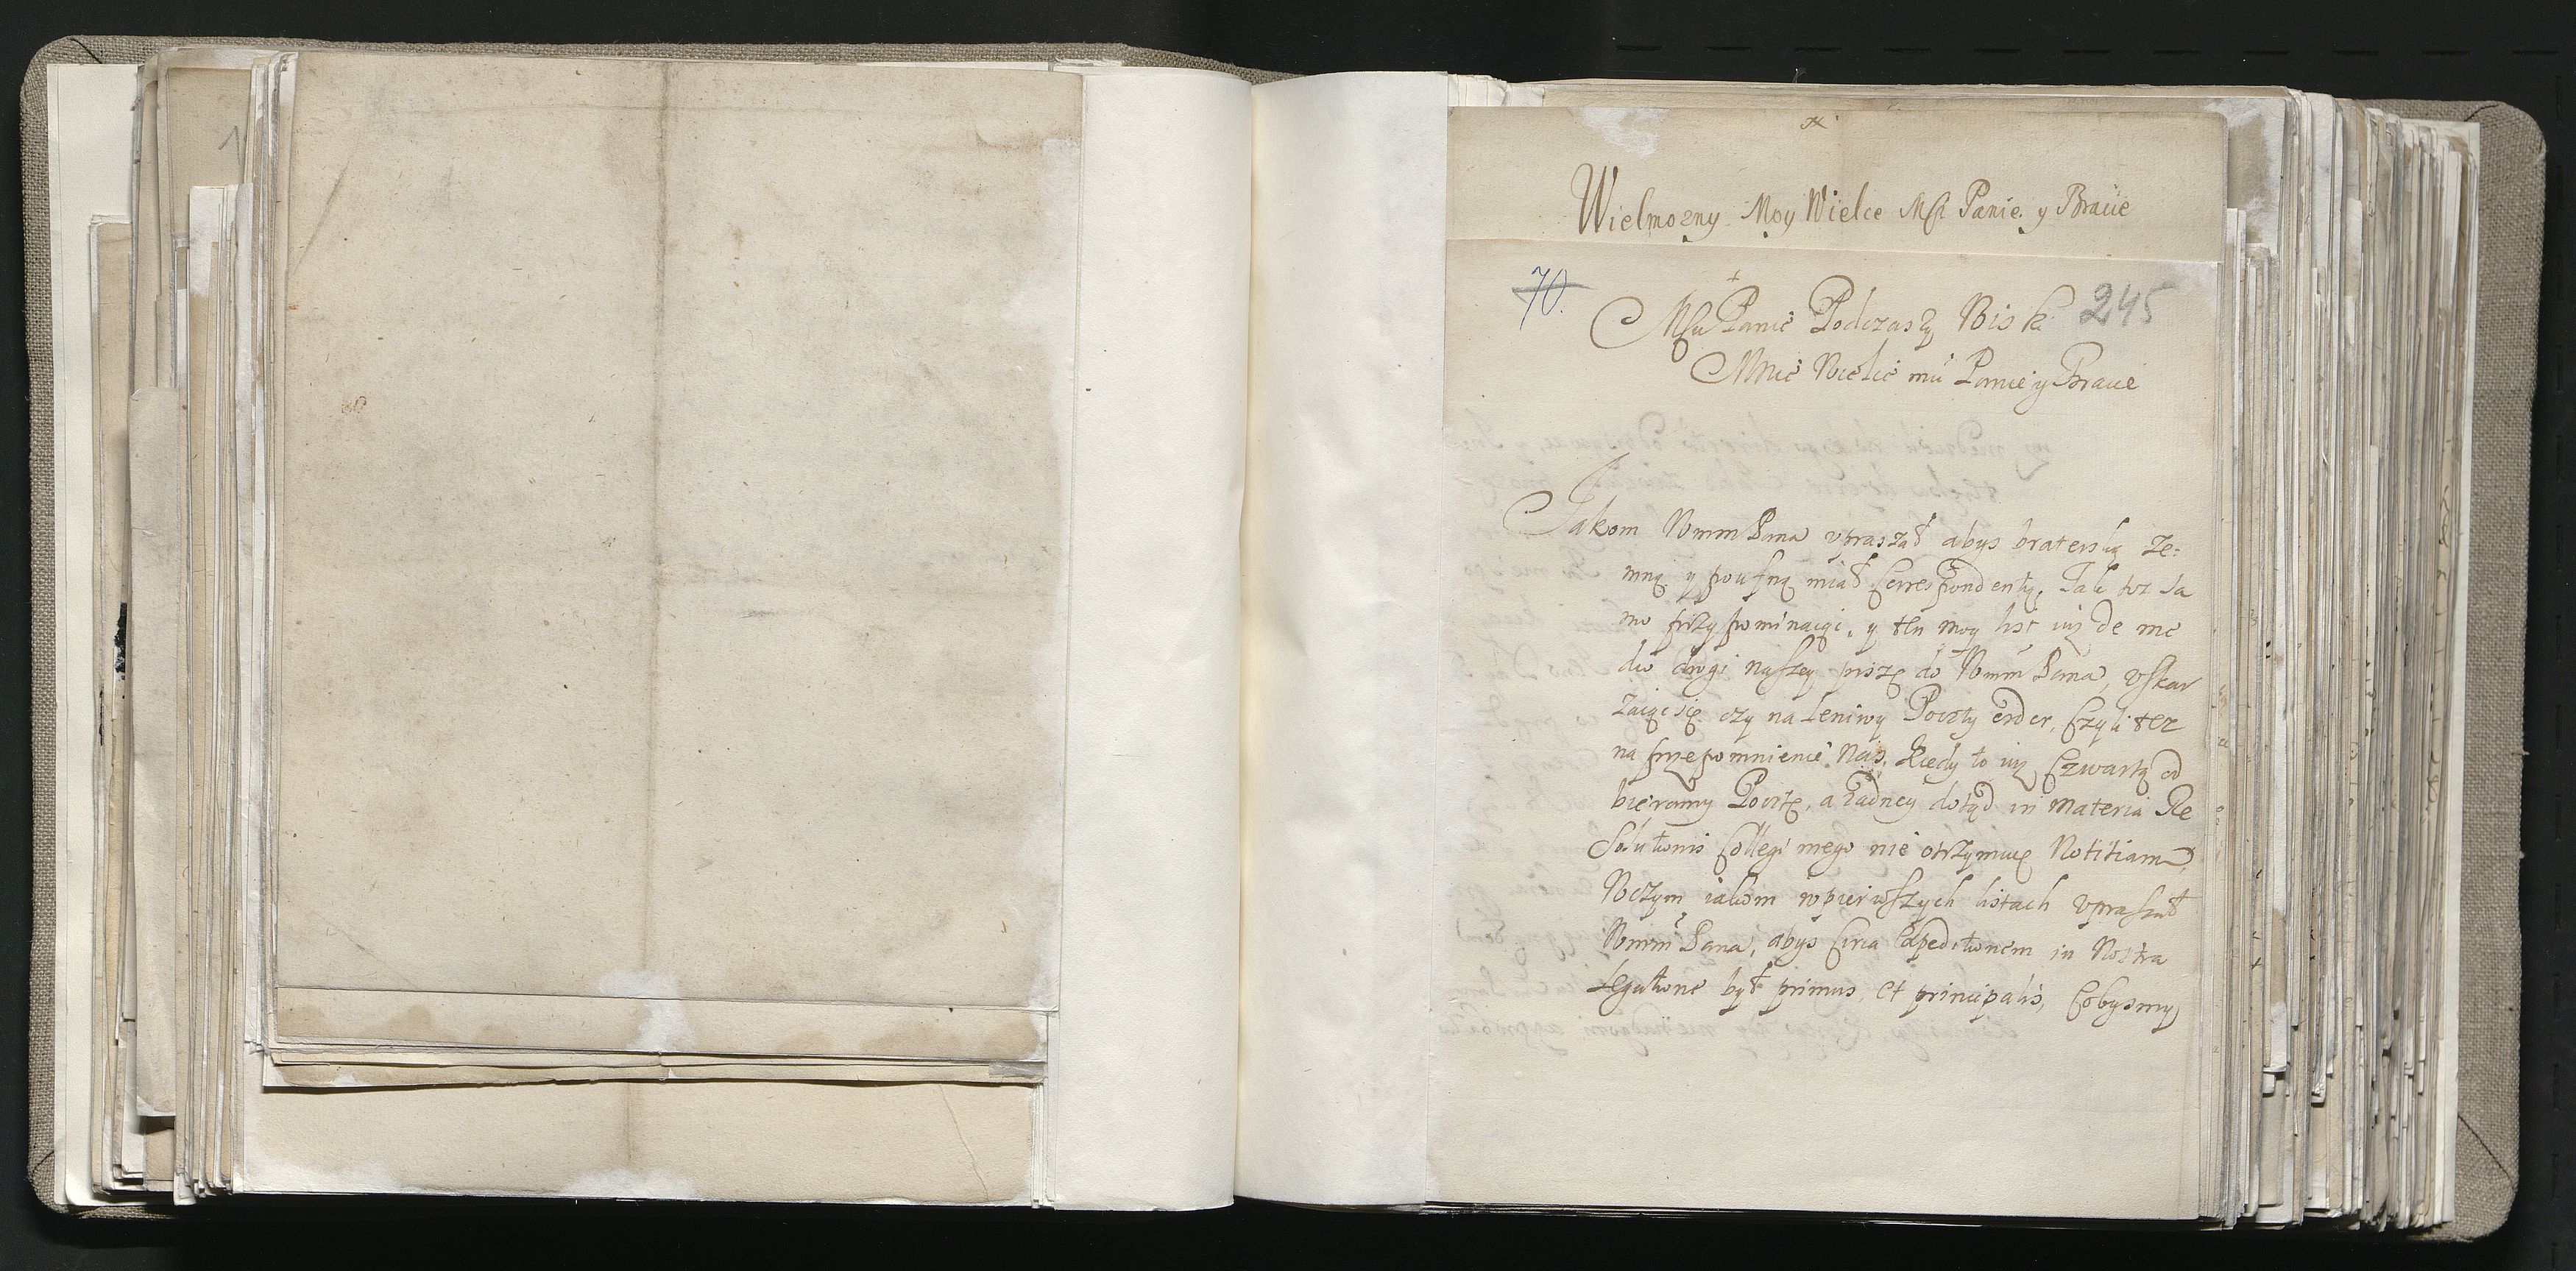 Wielmozny Moy Wielce Msci Panie y Bracie
70. 245
Msci Panie Podczaszy
Mnie Wielce mci Panie y Bracie
Jakom Wmm Pana vpraszał abys braterską ze:
mną y poufną miał Correspondentią, Tak toz sa
mo przypominaiąc, y ten moy list iuz de me
dio drogi naszey piszę do Wmm Pana, vskar
zaiąc się czy na leniwy Poczty order, Czyli tez
na przepomnienie Nas, Kiedy to iuz Czwartą od
bieramy Pocztę, a zadney dotąd in materia Re
solutionis Collegi mego nie otrzymuię Notitiam,
Wczym iakom wpierwszych listach vpraszał
Wmm Pana, abys Circa Expeditionem in Nostra
Legatione był primus, et principalis, Cobysmy